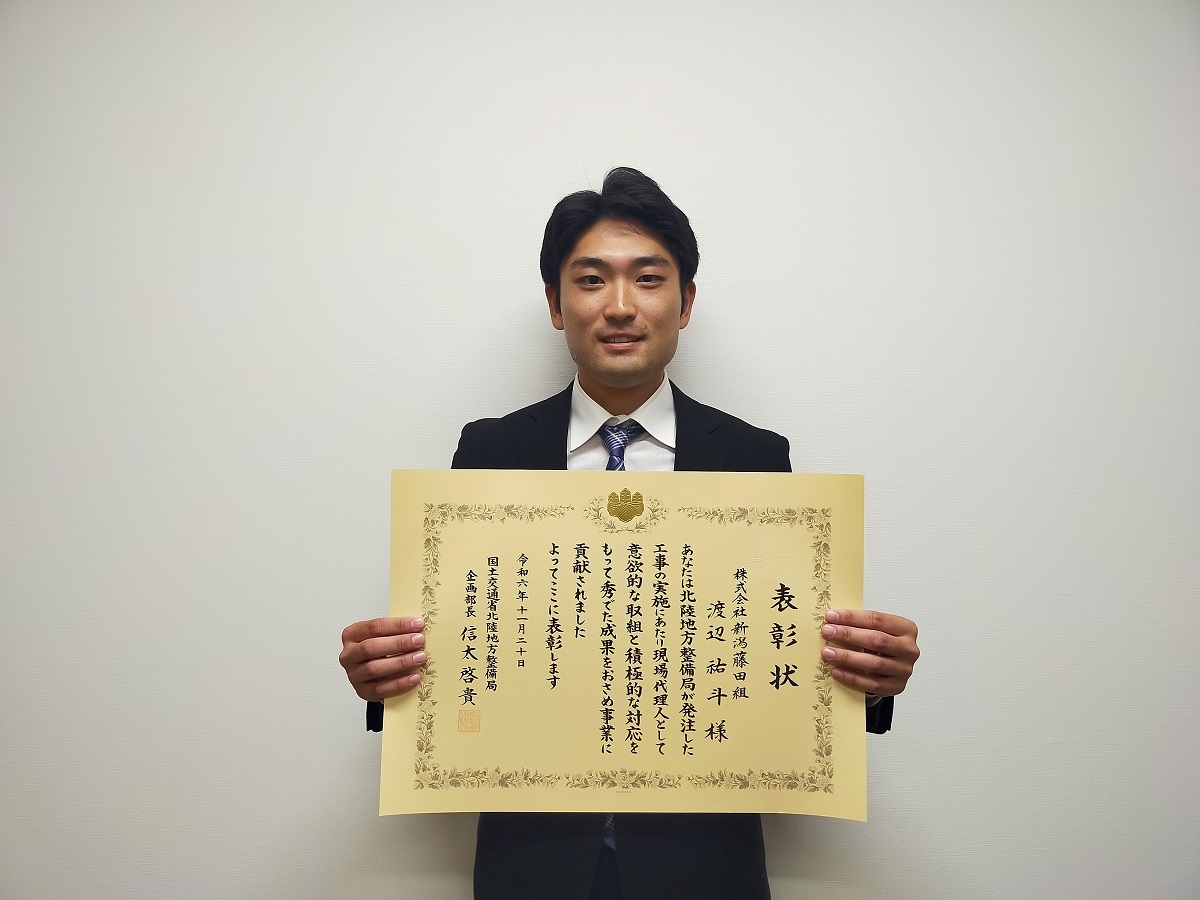 表彰状
株式会社新潟藤田組
渡辺祐斗様
あなたは北陸地方整備局が発注した
工事の実施にあたり現場代理人として
意欲的な取組と積極的な対応を
もって秀でた成果をおさめ事業に
貢献されました
よってここに表彰します
令和六年十一月二十日
国土交通省北陸地方整備局
企画部長 信太啓貴